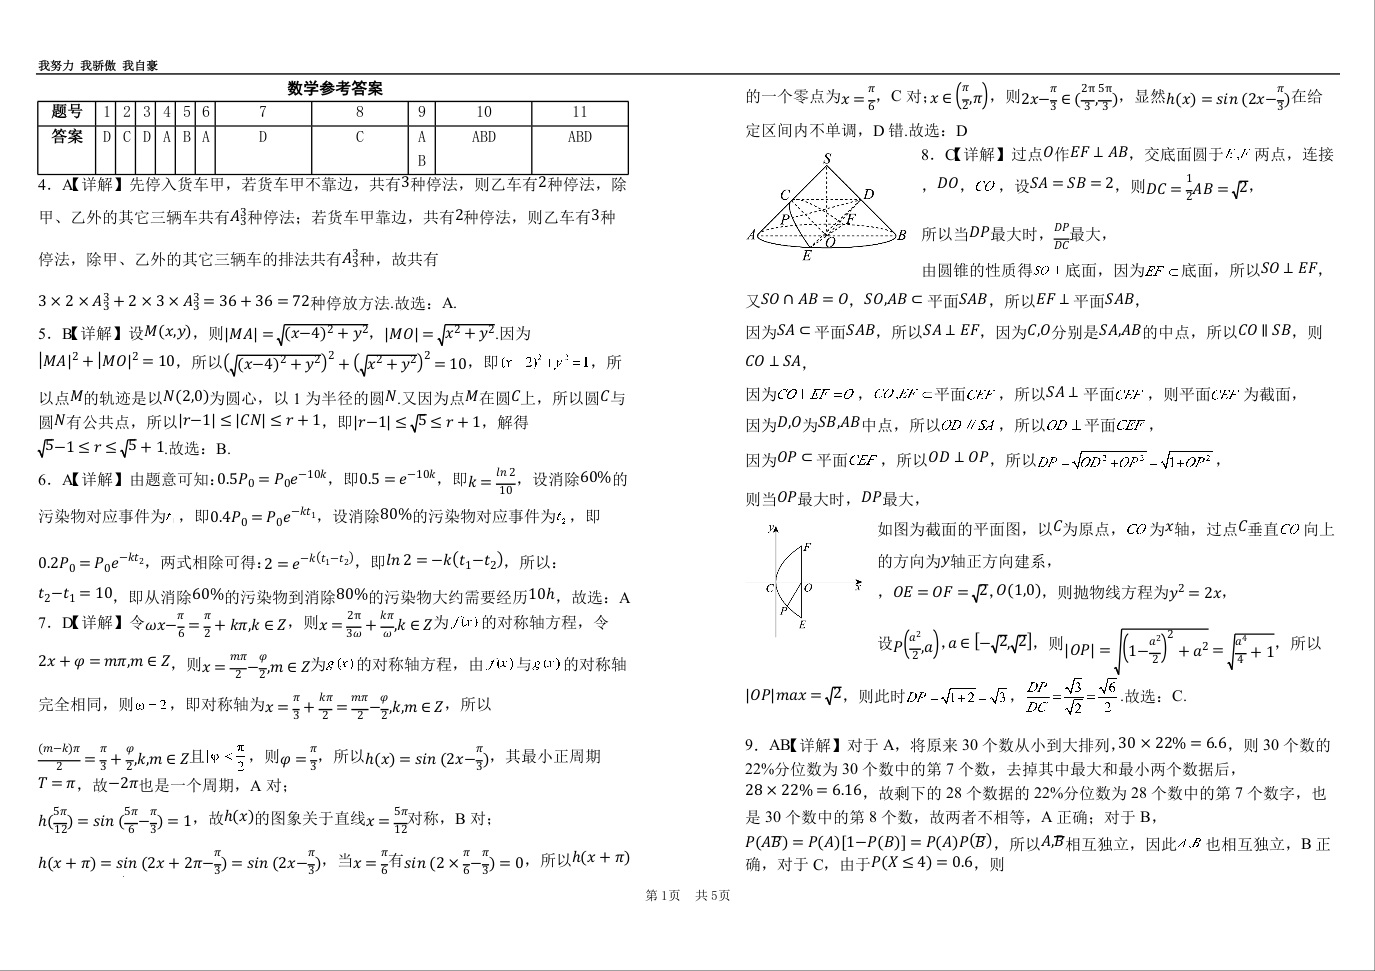 我努力 我骄傲 我自豪
数学参考答案
题号 1 2 3 4 5 6 7 8 9 10 11
答案 D C D A B A D C AB ABD ABD
4．A【详解】先停入货车甲，若货车甲不靠边，共有3种停法，则乙车有2种停法，除
甲、乙外的其它三辆车共有A₃³种停法；若货车甲靠边，共有2种停法，则乙车有3种
停法，除甲、乙外的其它三辆车的排法共有A₃³种，故共有
3 × 2 × A₃³ + 2 × 3 × A₃³ = 36 + 36 = 72种停放方法.故选：A.
5．B【详解】设M(x,y)，则|MA| = √((x−4)² + y²)，|MO| = √(x² + y²).因为
|MA|² + |MO|² = 10，所以(√((x−4)² + y²))² + (√(x² + y²))² = 10，即(x−2)²+y²=1，所
以点M的轨迹是以N(2,0)为圆心，以 1 为半径的圆N.又因为点M在圆C上，所以圆C与
圆N有公共点，所以|r−1| ≤ |CN| ≤ r + 1，即|r−1| ≤ √5 ≤ r + 1，解得
√5−1 ≤ r ≤ √5 + 1.故选：B.
6．A【详解】由题意可知：0.5P₀ = P₀e^(−10k)，即0.5 = e^(−10k)，即k = ln 2/10，设消除60%的
污染物对应事件为t ，即0.4P₀ = P₀e^(−kt₁)，设消除80%的污染物对应事件为t₂，即
0.2P₀ = P₀e^(−kt₂)，两式相除可得：2 = e^(−k(t₁−t₂))，即ln 2 = −k(t₁−t₂)，所以：
t₂−t₁ = 10，即从消除60%的污染物到消除80%的污染物大约需要经历10h，故选：A
7．D【详解】令ωx−π/6 = π/2 + kπ,k ∈ Z，则x = 2π/3ω + kπ/ω,k ∈ Z为f(x)的对称轴方程，令
2x + φ = mπ,m ∈ Z，则x = mπ/2−φ/2,m ∈ Z为g(x)的对称轴方程，由f(x)与g(x)的对称轴
完全相同，则ω=2，即对称轴为x = π/3 + kπ/2 = mπ/2−φ/2,k,m ∈ Z，所以
(m−k)π/2 = π/3 + φ/2,k,m ∈ Z且|φ|<π/2，则φ = π/3，所以h(x) = sin (2x−π/3)，其最小正周期
T = π，故−2π也是一个周期，A 对；
h(5π/12) = sin (5π/6−π/3) = 1，故h(x)的图象关于直线x = 5π/12对称，B 对；
h(x + π) = sin (2x + 2π−π/3) = sin (2x−π/3)，当x = π/6有sin (2 × π/6−π/3) = 0，所以h(x + π)
的一个零点为x = π/6，C 对；x ∈ (π/2,π)，则2x−π/3 ∈ (2π/3,5π/3)，显然h(x) = sin (2x−π/3)在给
定区间内不单调，D 错.故选：D
S
C
D
P
F
A
O
B
E
8．C【详解】过点O作EF ⊥ AB，交底面圆于E,F两点，连接
，DO，CO，设SA = SB = 2，则DC = 1/2AB = √2，
所以当DP最大时，DP/DC最大，
由圆锥的性质得SO⊥底面，因为EF⊂底面，所以SO ⊥ EF，
又SO ∩ AB = O，SO,AB ⊂ 平面SAB，所以EF ⊥ 平面SAB，
因为SA ⊂ 平面SAB，所以SA ⊥ EF，因为C,O分别是SA,AB的中点，所以CO ∥ SB，则
CO ⊥ SA，
因为CO∩EF=O，CO,EF⊂平面CEF，所以SA ⊥ 平面CEF，则平面CEF为截面，
因为D,O为SB,AB中点，所以OD∥SA，所以OD ⊥ 平面CEF，
因为OP ⊂ 平面CEF，所以OD ⊥ OP，所以DP=√(OD²+OP²)=√(1+OP²)，
则当OP最大时，DP最大，
y
F
C
O
x
P
E
如图为截面的平面图，以C为原点，CO为x轴，过点C垂直CO向上
的方向为y轴正方向建系，
，OE = OF = √2,O(1,0)，则抛物线方程为y² = 2x，
设P(a²/2,a)，a ∈ [−√2,√2]，则|OP| = √((1−a²/2)² + a²) = √(a⁴/4 + 1)，所以
|OP|max = √2，则此时DP=√(1+2)=√3，DP/DC=√3/√2=√6/2.故选：C.
9．AB【详解】对于 A，将原来 30 个数从小到大排列,30 × 22% = 6.6，则 30 个数的
22%分位数为 30 个数中的第 7 个数，去掉其中最大和最小两个数据后，
28 × 22% = 6.16，故剩下的 28 个数据的 22%分位数为 28 个数中的第 7 个数字，也
是 30 个数中的第 8 个数，故两者不相等，A 正确；对于 B，
P(AB̅) = P(A)[1−P(B)] = P(A)P(B̅)，所以A,B̅相互独立，因此A,B也相互独立，B 正
确，对于 C，由于P(X ≤ 4) = 0.6，则
第 1页 共 5页